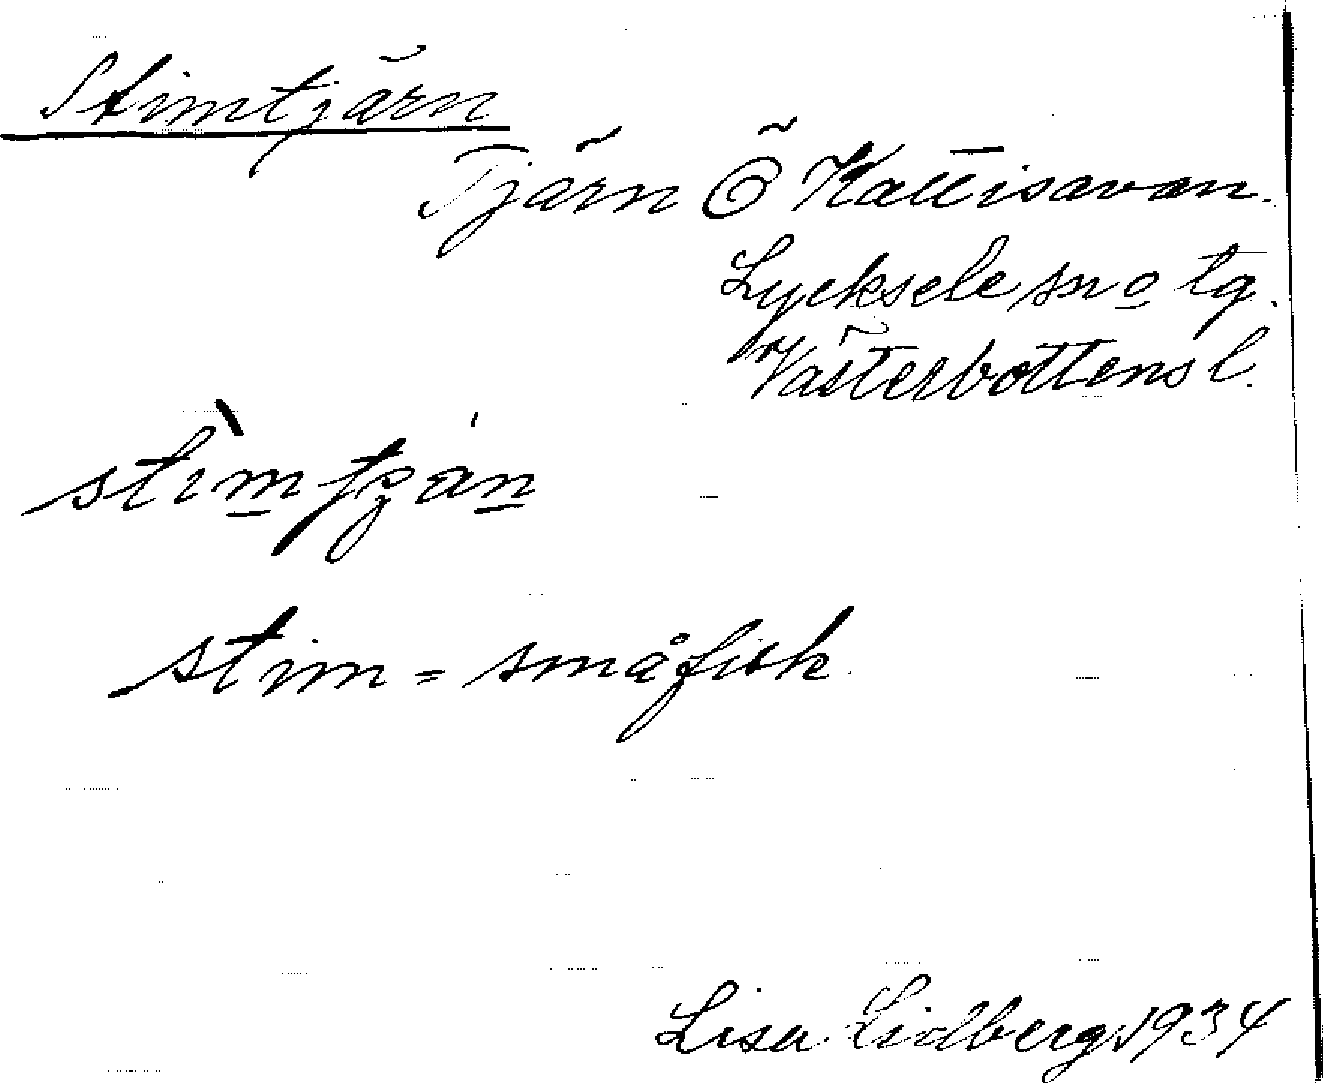 Stimtjärn
Tjärn Ö Kattisavan.
Lycksele sn o tg.
Västerbottens l.
stim = småfisk.
Lisa Lidberg 1934